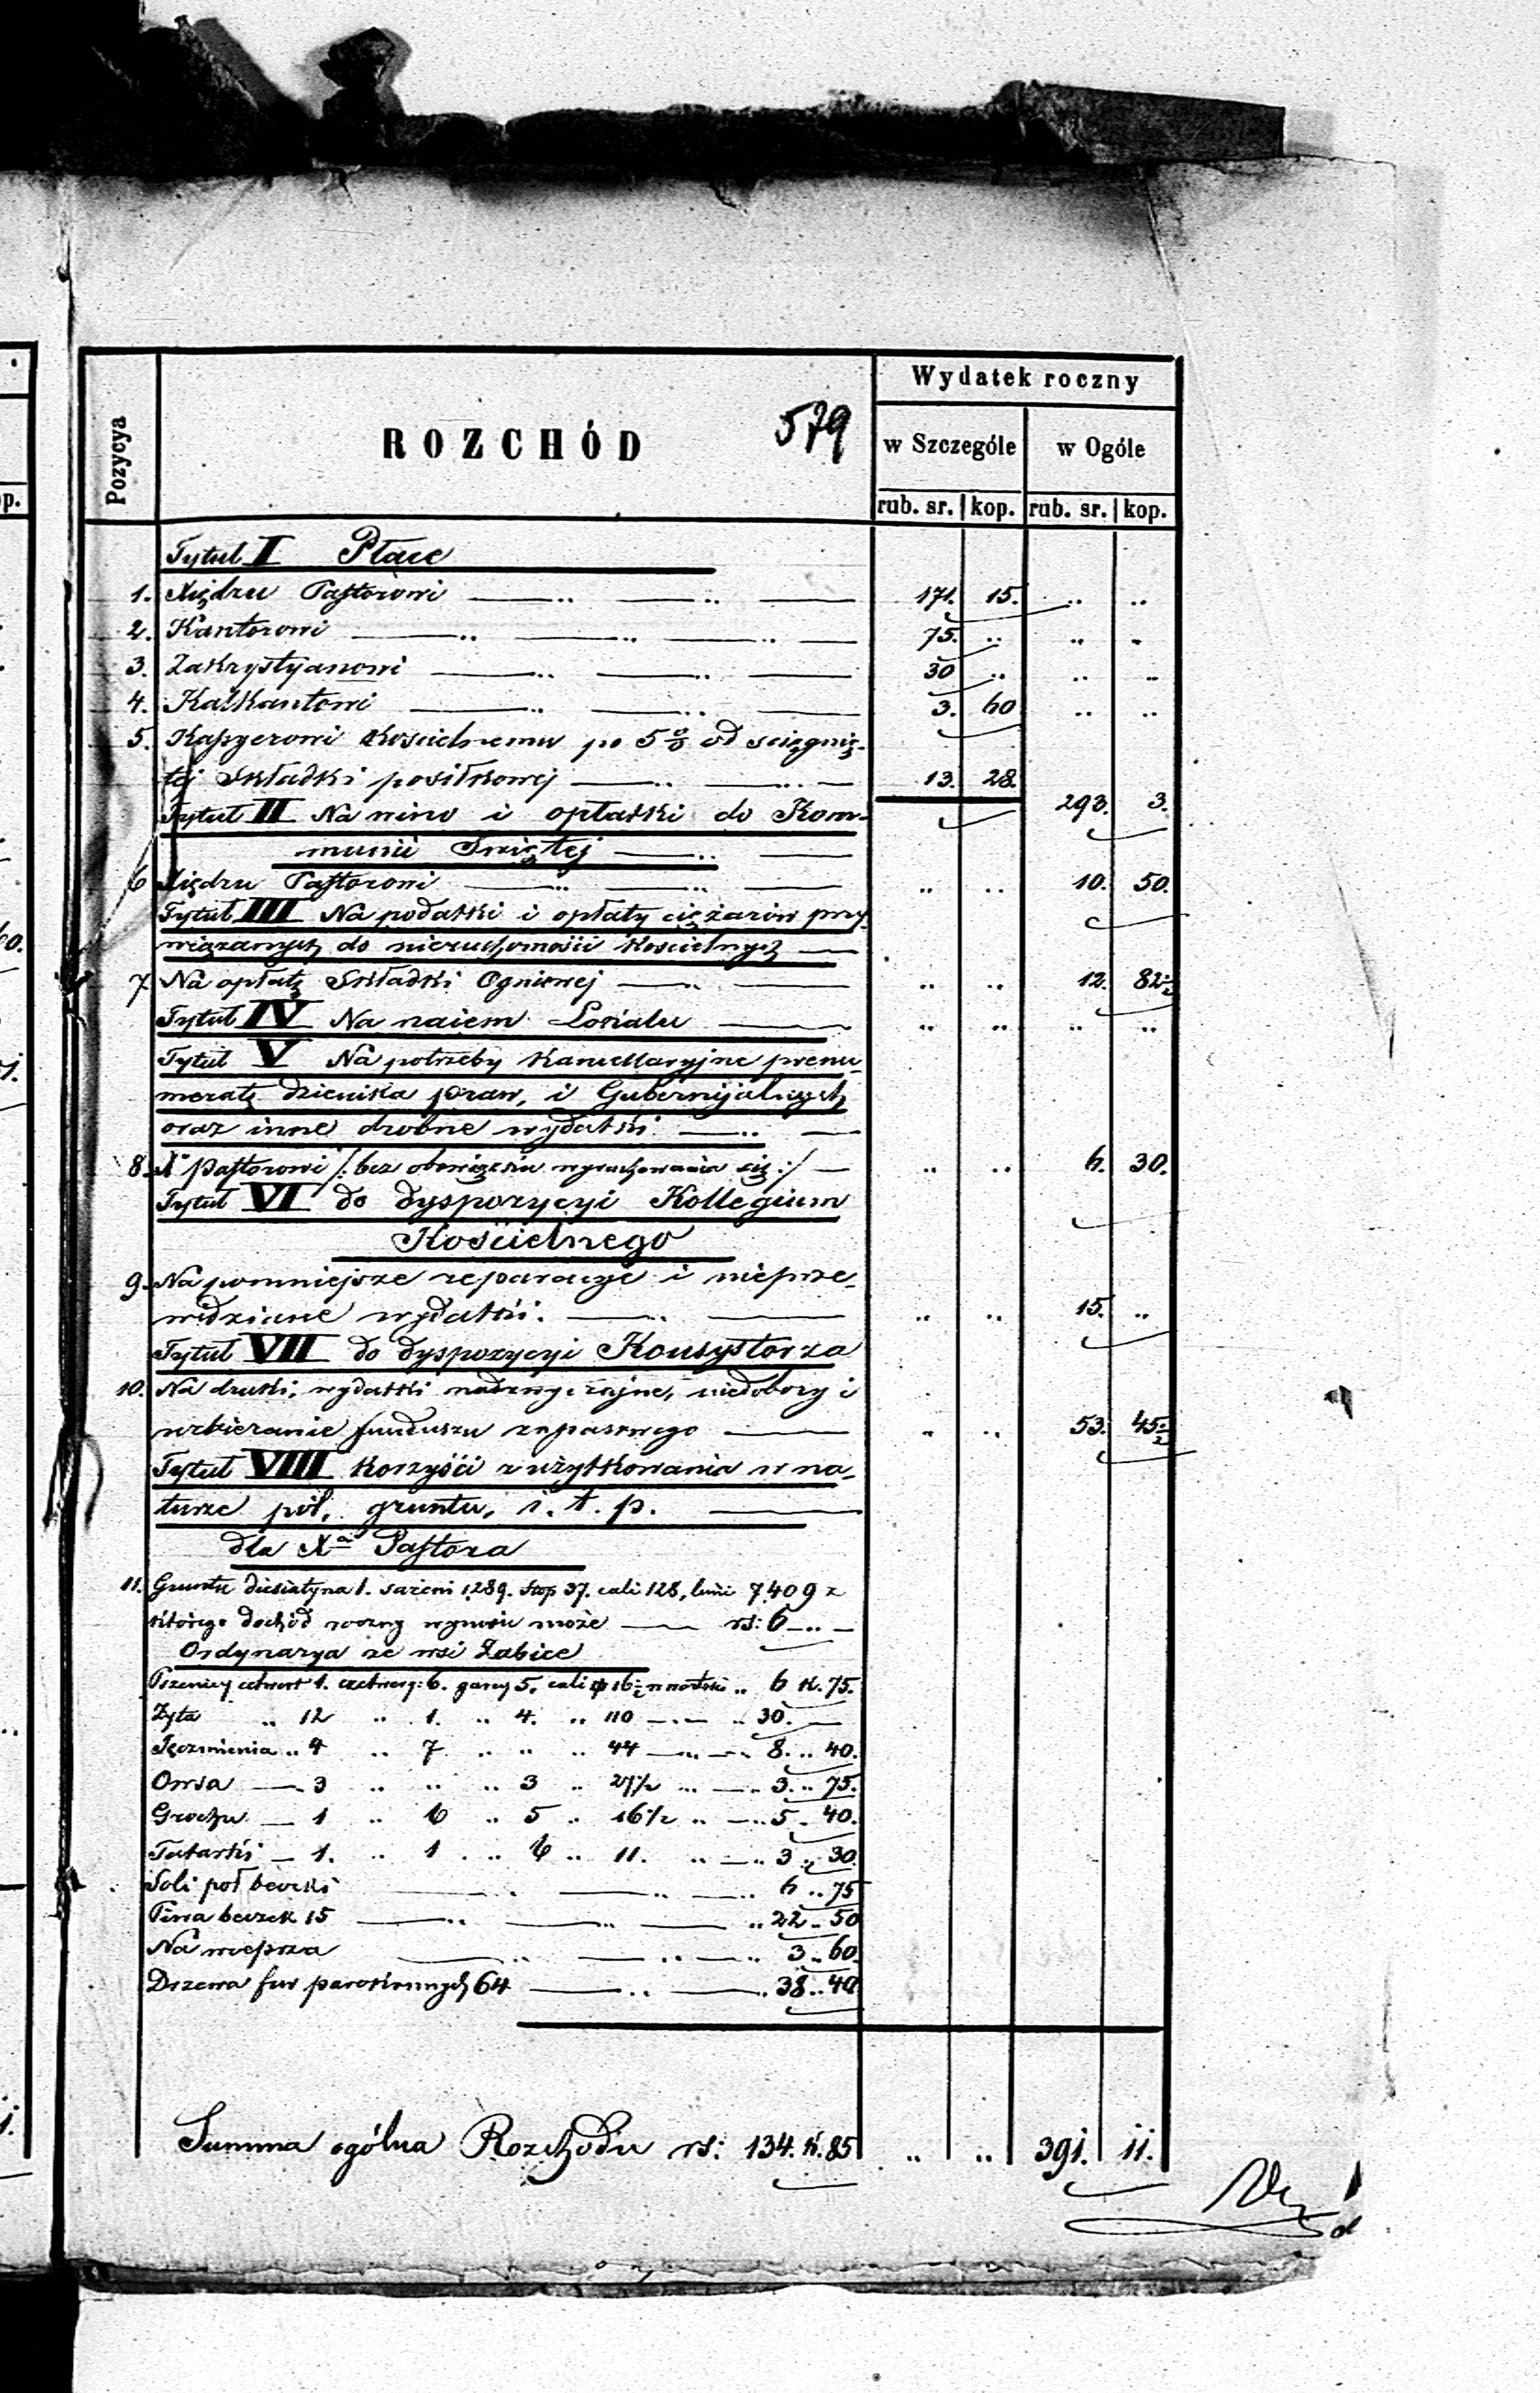 Pozycya
ROZCHÓD
579
Wydatek roczny
w Szczególe w Ogóle
rub. sr. kop. rub. sr. kop.
Tytuł I Płace
1. Xiędzu Pastorowi 171. 15. .. ..
2. Kantorowi 75. .. .. ..
3. Zakrystyanowi 30 .. .. ..
4. Kalkantowi 3. 60 .. ..
5. Kassyerowi Kościelnemu po 5% od sciągnię-
tej Składki posiłkowej 13. 28. 293. 3.
Tytuł II Na wino i opłatki do Kom-
munii Swiętej
6 Xiędzu Pastorowi .. .. 10. 50.
Tytuł III Na podatki i opłaty ciężarów przy-
wiązanych do nieruchomości Kościelnych
7. Na opłatę Składki Ogniowej .. .. 12. 82½
Tytuł IV Na naiem Lokalu .. .. .. ..
Tytuł V Na potrzeby Kancellaryjne prenu-
meratę dzienika praw, i Gubernijalnych
oraz inne drobne wydatki
8. Xu Pastorowi /: bez obowiązku wyrachowania się :/ .. .. 6. 30.
Tytuł VI do dyspozycyi Kollegium
Kościelnego
9. Na pomniejsze reparacye i nieprze-
widziane wydatki. .. .. 15. ..
Tytuł VII do dyspozycyi Konsystorza
10. Na druki, wydatki nadzwyczajne, niedobory i
uzbieranie funduszu zapasowego .. .. 53. 45½
Tytuł VIII Korzyści z użytkowania w na-
turze pól, gruntu, i. t. p.
dla Xa Pastora
11. Gruntu diesiatyna 1. sażeni 1289. stop 37. cali 128, linii 7409 z
którego dochód roczny wynosić może rs: 6 — .. —
Ordynarya ze wsi Żabice
Pszenicy czetwert 1. czetweryk: 6. garcy 5. cali 16½ .. 6 k. 75.
Żyta .. 12 .. 1. .. 4. .. 110 — .. — .. 30. —
Jęczmienia .. 4 .. 7 .. .. .. 44 — 8. .. 40.
Owsa — 3 .. .. .. 3 .. 27½ .. — .. 3. .. 75.
Grochu — 1 .. 6 .. 5 .. 16½ .. — .. 5 .. 40.
Tatarki — 1. .. 1 .. 6 .. 11. .. — .. 3 .. 30.
Soli pół beczki 6 .. 75
Piwa beczek 15 .. 22 .. 50
Na wieprza 3 .. 60
Drzewa fur parokonnych 64 38 .. 40
Summa ogólna Rozchodu rs: 134. k. 85 .. .. 391. 11.